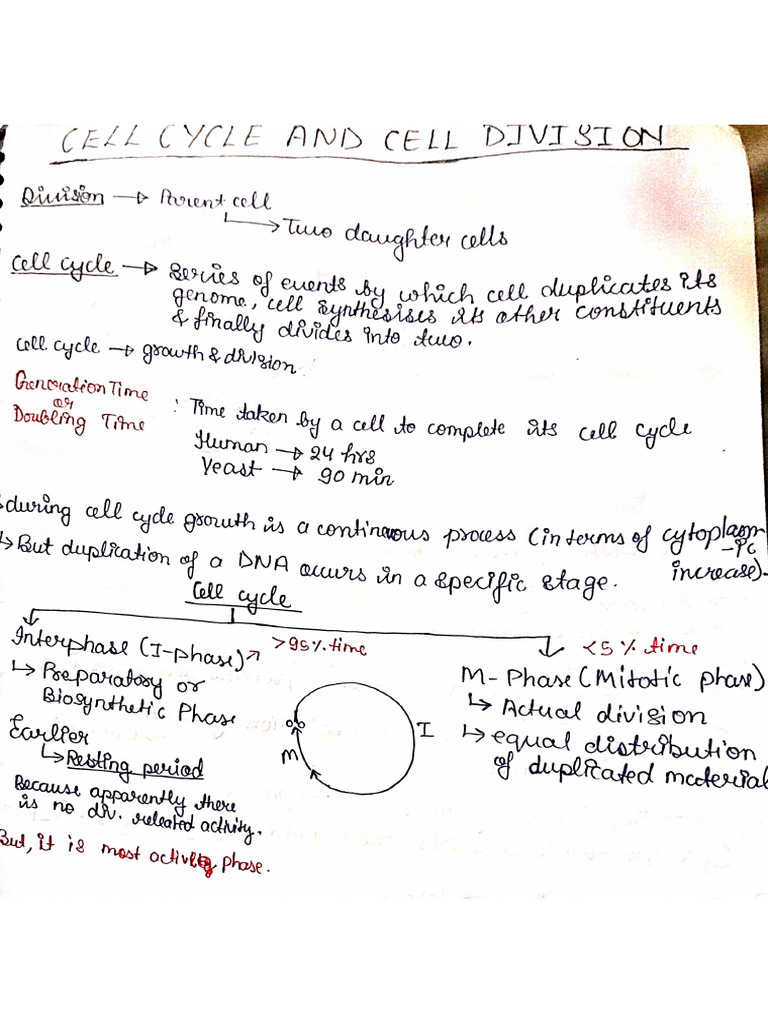 CELL CYCLE AND CELL DIVISION
Division → Parent cell
→ Two daughter cells
Cell cycle → Series of events by which cell duplicates its
genome, cell synthesises its other constituents
& finally divides into two.
Cell cycle → growth & division
Generation Time
or
Doubling Time
: Time taken by a cell to complete its cell cycle
Human → 24 hrs
Yeast → 90 min
during cell cycle growth is a continuous process (in terms of cytoplasm
-ic
increase).
↳ But duplication of a DNA occurs in a specific stage.
Cell cycle
Interphase (I-phase) >95% time
↳ Preparatory or
Biosynthetic Phase
Earlier
↳ Resting period
Because apparently there
is no div. releated activity.
But, it is most active phase.
I
M
<5% time
M-Phase (Mitotic phase)
↳ Actual division
↳ equal distribution
of duplicated material